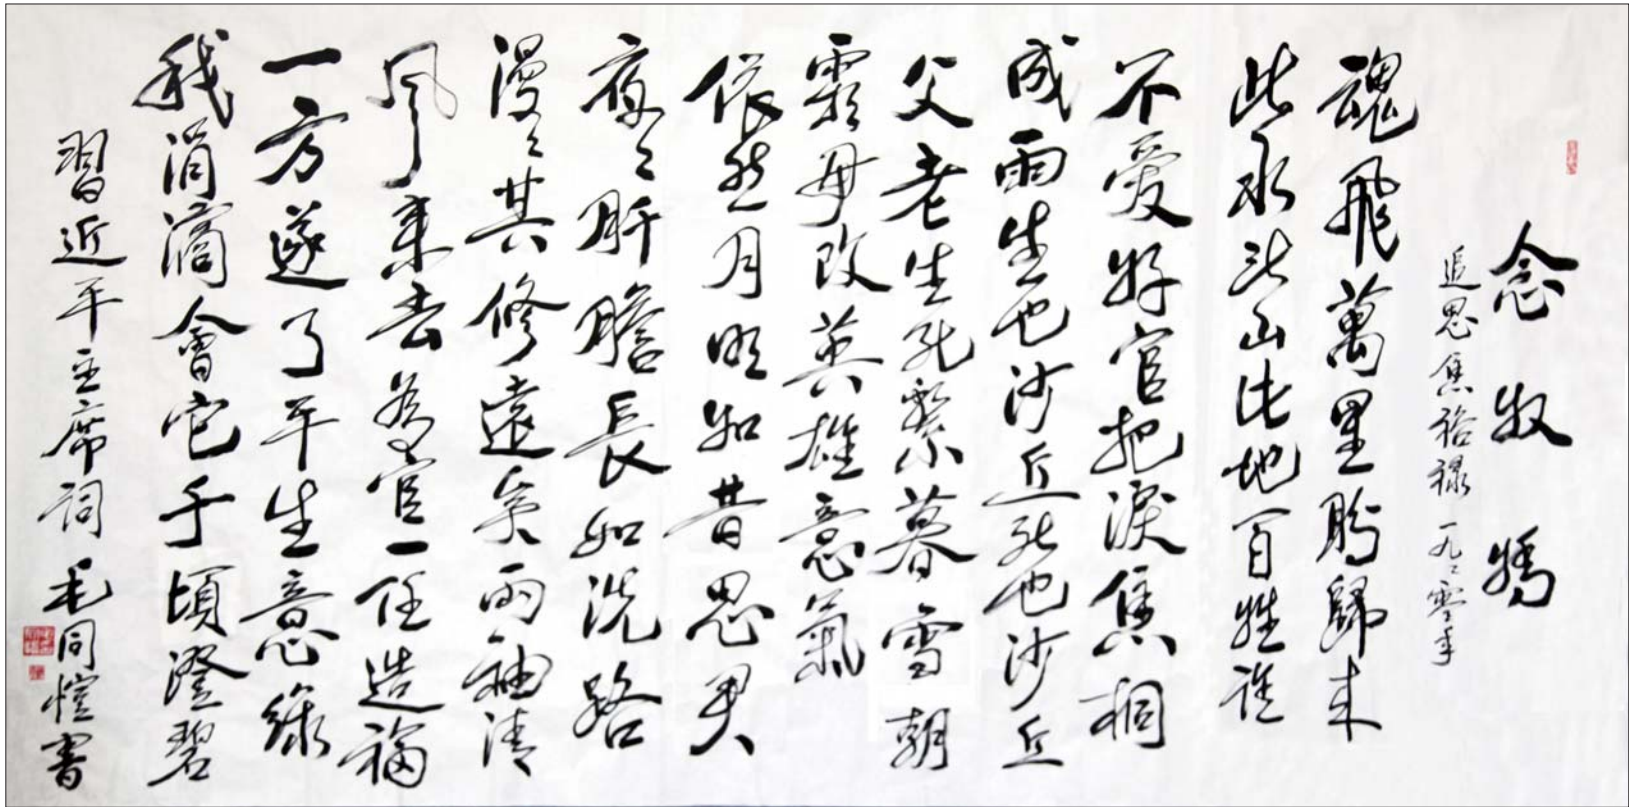 念奴嬌
追思焦裕祿 一九々零年
魂飛萬里盼歸来
此水此山此地百姓誰
不愛好官把淚焦桐
成雨生也沙丘死也沙丘
父老生死繫暮雪朝
霜毋改英雄意氣
依然月明如昔思君
夜々肝膽長如洗路
漫々其修遠矣兩袖清
風来去為官一任造福
一方遂了平生意綠
我涓滴會它千頃澄碧
習近平主席詞 毛同愷書